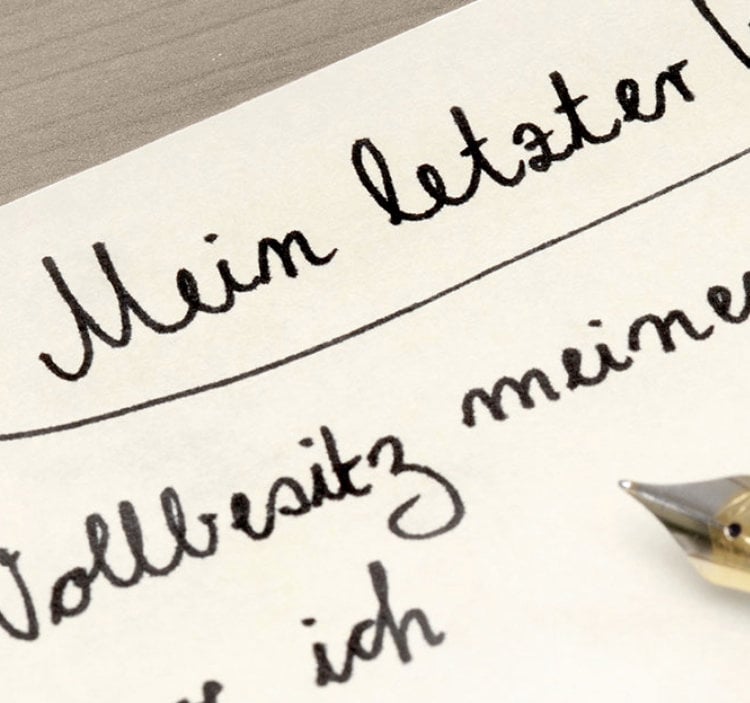 Mein letzter
Vollbesitz meine
ich